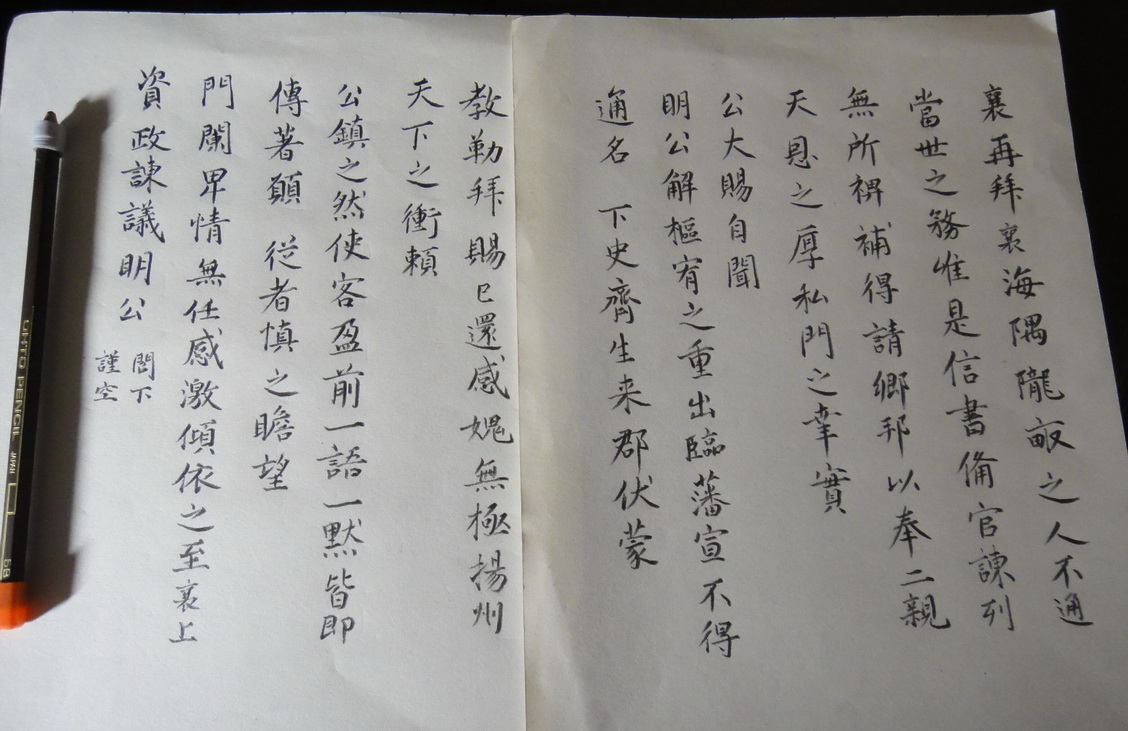 襄再拜襄海隅隴畝之人不通
當世之務惟是信書俻官諫列
無所裨補得請鄉邦以奉二親
天恩之厚私門之幸實
公大賜自聞
明公解樞宥之重出臨藩宣不得
通名 下史齊生来郡伏蒙
教勒拜賜已還感媿無極揚州
天下之衝賴
公鎮之然使客盈前一語一默皆即
傳著願 從者慎之瞻望
門闌卑情無任感激傾依之至襄上
資政諫議明公
閤下
謹空
PENCIL